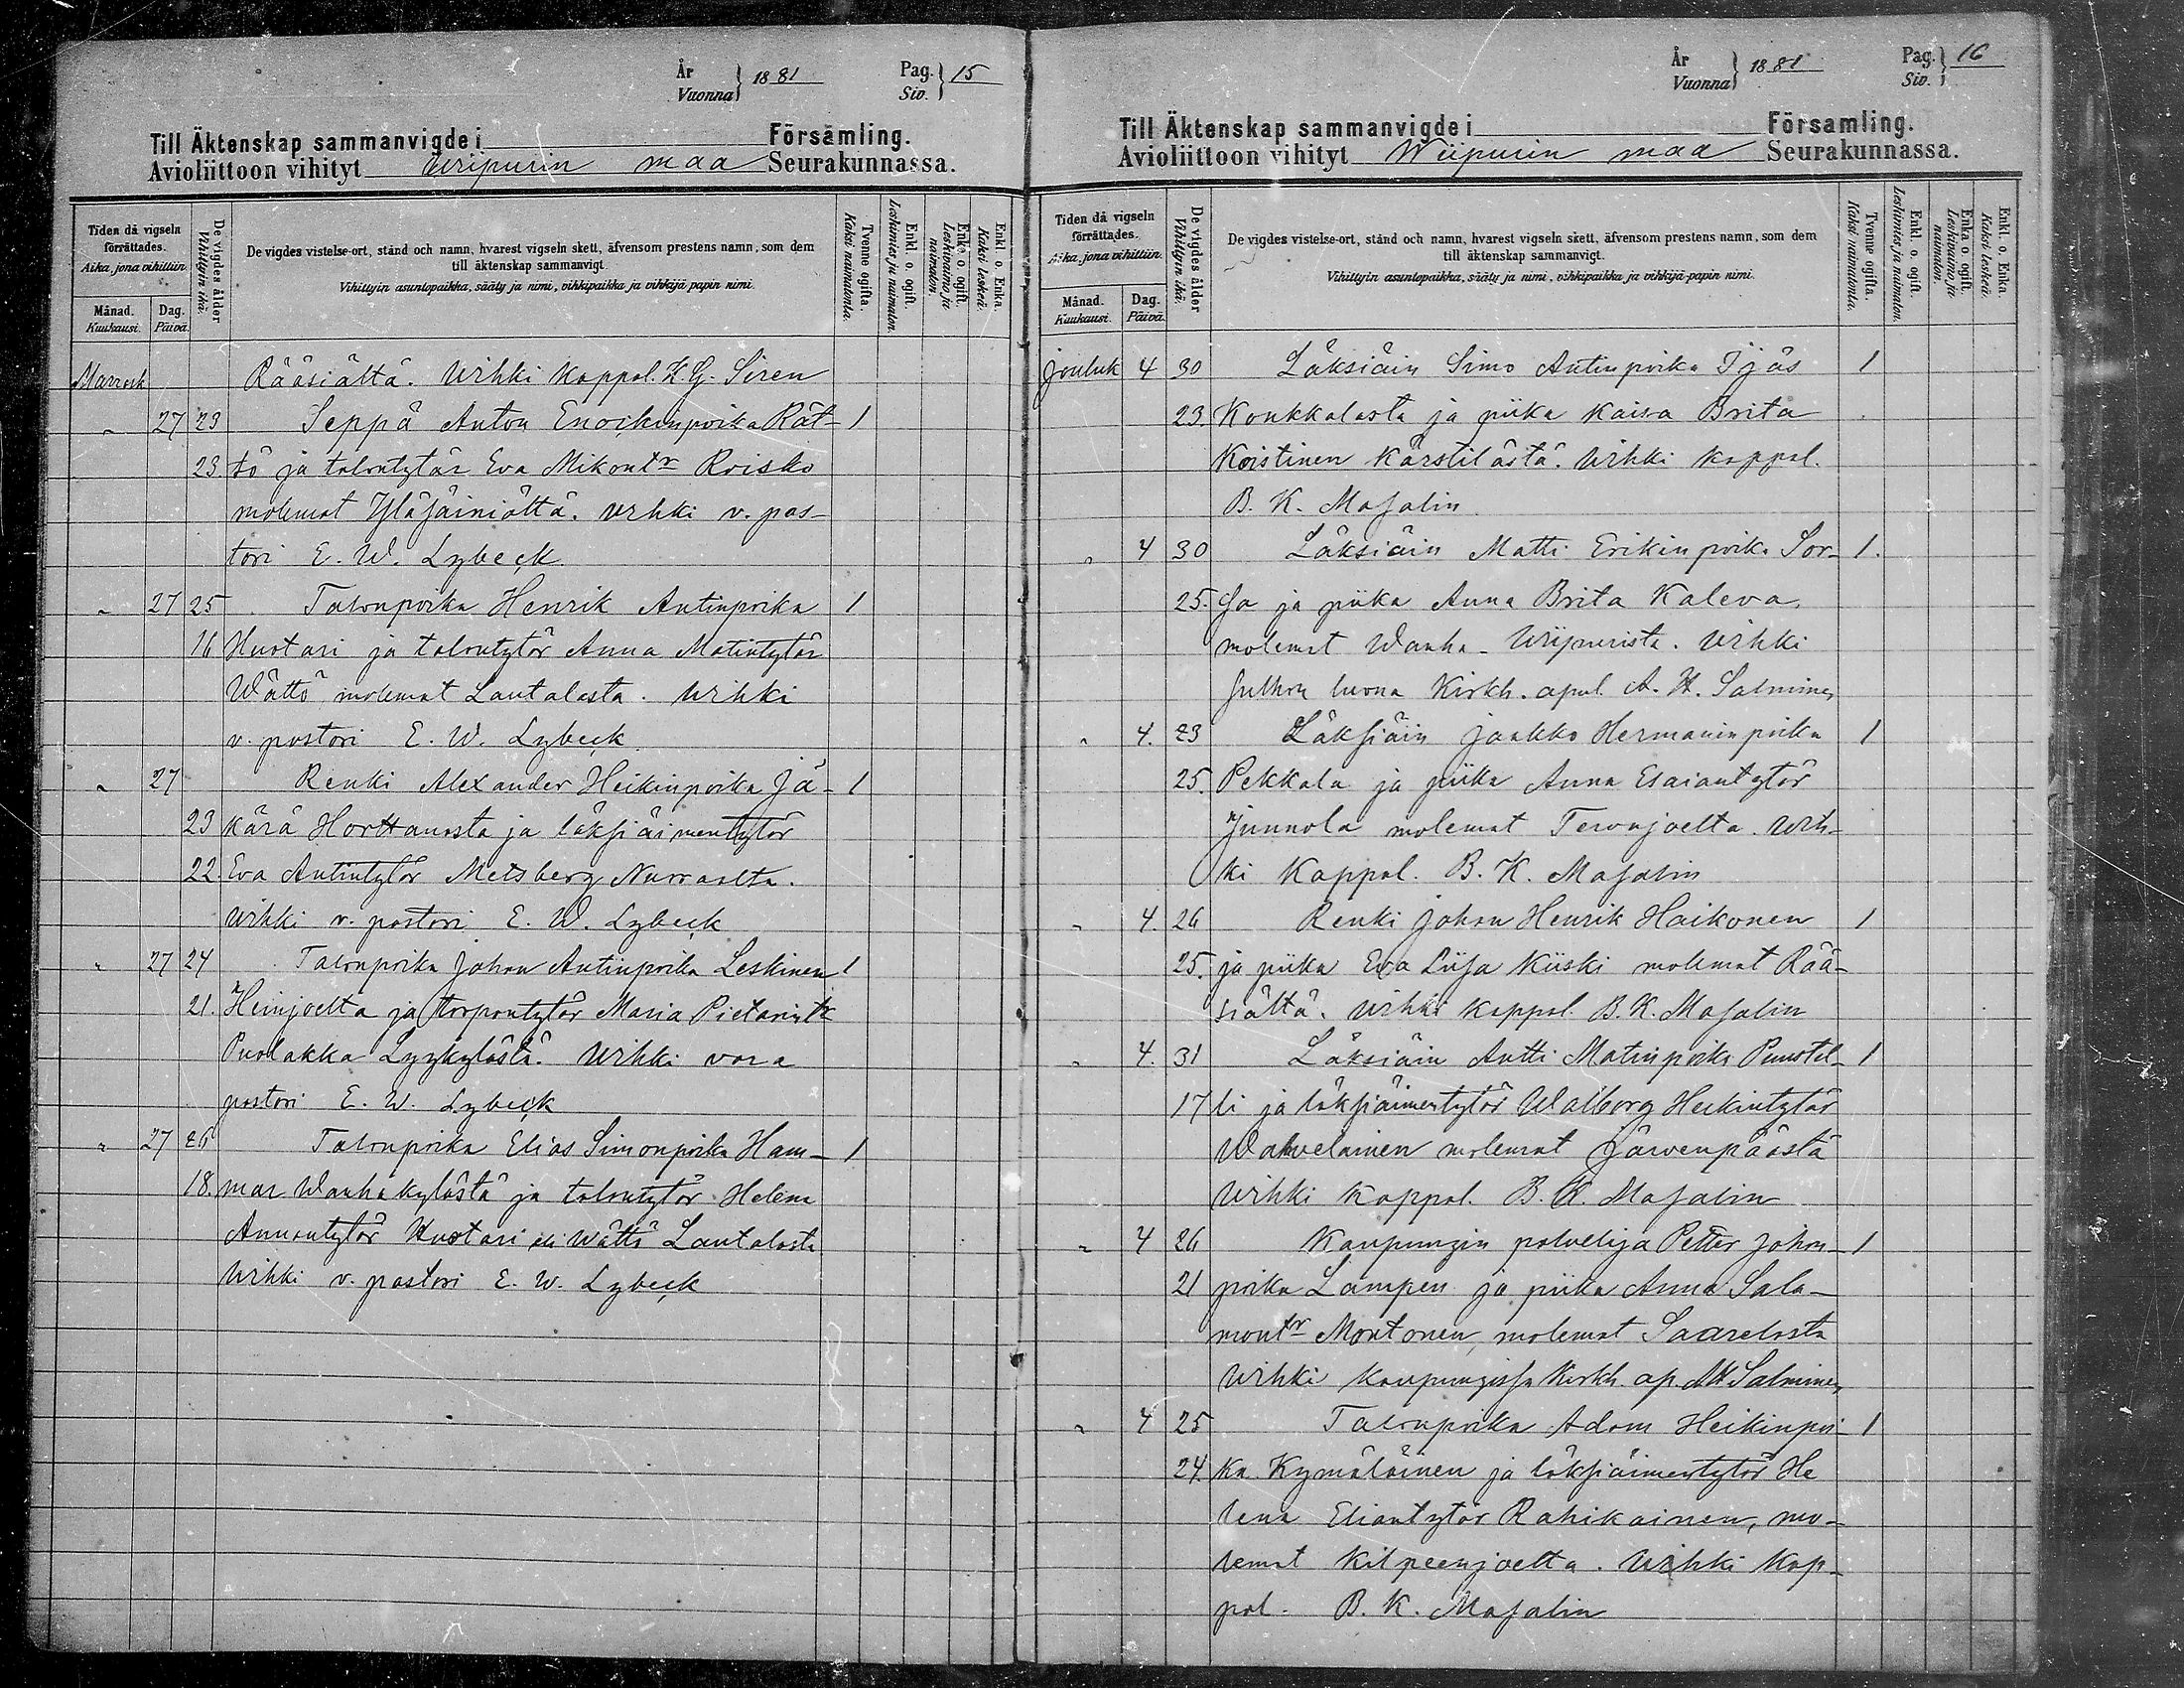 År
Vuonna } 1881 Pag. Siv. } 15
Till Äktenskap sammanvigde i Församling.
Avioliittoon vihityt Wiipurin maa Seurakunnassa.
Tiden då vigseln förrättades.
Aika, jona vihittiin.
Månad. Kuukausi.
Dag. Päivä.
De vigdes ålder
Vihittyin ikä.
De vigdes vistelse-ort, stånd och namn, hvarest vigseln skett, äfvensom prestens namn, som dem
till äktenskap sammanvigt.
Vihittyin asuntopaikka, sääty ja nimi, vihkipaikka ja vihkijä papin nimi.
Tvenne ogifta.
Kaksi naimatonta.
Enkl. o. ogift.
Leskimies ja naimaton.
Enka o. ogift.
Leskivaimo ja naimaton.
Enkl. o. Enka.
Kaksi leskeä.
Marrask Rääsiältä. Wihki Kappal. K. G. Siren
" 27 23 Seppä Anton Enockinpoika Rät- 1
23. tö ja talontytär Eva Mikontr Roisko
molemat Yläsäiniöltä. Wihki v. pas-
tori E. W. Lybeck
" 27 25 Talonpoika Henrik Antinpoika 1
16 Huotari ja talontytär Anna Matintytär
Wättö molemat Lautalasta. Wihki
v. pastori E. W. Lybeck
" 27 Renki Alexander Heikinpoika Jä- 1
23 kärä Horttanasta ja läksiäimentytär
22. Eva Antintytär Metsberg Nurraslta.
Wihki v. pastori E. W. Lybeck
" 27 24 Talonpoika Johan Antinpoika Leskinen 1
21. Heinjoelta ja torpantytär Maria Pietarintr
Puolakka Lyykylästä. Wihki vara
pastori E. W. Lybeck
" 27 26 Talonpoika Elias Simonpoika Ham- 1
18. mar Wanhakylästä ja talontytär Helena
Annantytär Huotari eli Wättö Lautalasta
Wihki v. pastori E. W. Lybeck
År
Vuonna } 1881 Pag. Siv. } 16
Till Äktenskap sammanvigde i Församling.
Avioliittoon vihityt Wiipurin maa Seurakunnassa.
Tiden då vigseln förrättades.
Aika, jona vihittiin.
Månad. Kuukausi.
Dag. Päivä.
De vigdes ålder
Vihittyin ikä.
De vigdes vistelse-ort, stånd och namn, hvarest vigseln skett, äfvensom prestens namn, som dem
till äktenskap sammanvigt.
Vihittyin asuntopaikka, sääty ja nimi, vihkipaikka ja vihkijä-papin nimi.
Tvenne ogifta.
Kaksi naimatonta.
Enkl. o. ogift.
Leskimies ja naimaton.
Enka o. ogift.
Leskivaimo ja naimaton.
Enkl. o. Enka.
Kaksi leskeä.
Jouluk 4 30 Läksiäin Simo Antinpoika Ijäs 1
23. Konkkalasta ja piika Kaisa Brita
Koistinen Kärstilästä. Wihki kappal.
B. K. Masalin
" 4 30 Läksiäin Matti Erikinpoika Sor- 1.
25. sa ja piika Anna Brita Kaleva,
molemat Wanha-Wiipurista. Wihki
luona Kirkh. apul. A. H. Salminen
" 4. 23 Läksiäin Jaakko Hermaninpoika 1
25. Pekkala ja piika Anna Esaiantytär
Junnola molemat Tervajoelta. Wih-
ki Kappal. B. K. Masalin
" 4. 26 Renki Johan Henrik Haikonen 1
25. ja piika Eva Liisa Kiiski molemat Rää-
siältä. Wihki kappal. B. K. Masalin
" 4. 31 Läksiäin Antti Matinpoika Puustel- 1
17 li ja läksiäimentytär Walborg Heikintytär
Wahvelainen molemat Järvenpäästä
Wihki Kappal. B. K. Masalin
" 4 26 Kaupungin palvelija Petter Johan- 1
21 poika Lampen ja piika Anna Sala-
montr Montonen, molemat Saarelasta
Wihki kaupungissa Kirkh. ap. A H Salminen
" 4 25 Talonpoika Adam Heikinpoi- 1
24. ka Kymäläinen ja läksiäimentytär He
lena Eliantytär Rahikainen, mo-
lemat Kilpeenjoelta. Wihki Kap-
pal. B. K. Masalin